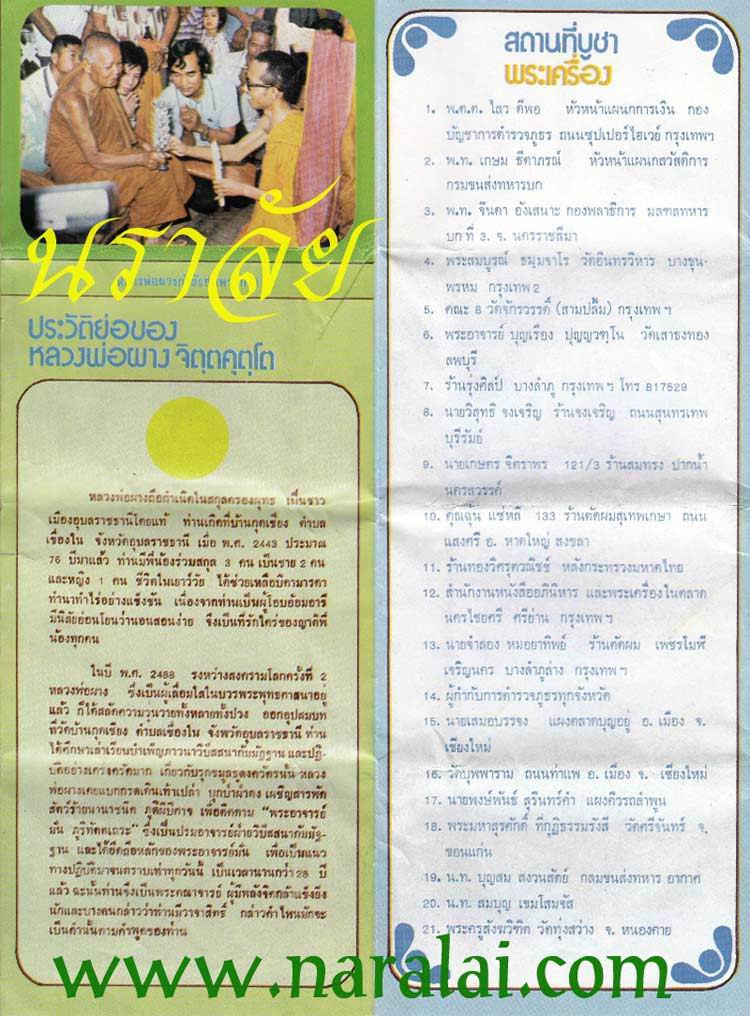 นราลัย
ประวัติย่อของ
หลวงพ่อผาง จิตฺตคุตฺโต
หลวงพ่อผางถือกำเนิดในสกุลครองพุทธ เป็นชาว
เมืองอุบลราชธานีโดยแท้ ท่านเกิดที่บ้านกุดเชียง ตำบล
เขื่องใน จังหวัดอุบลราชธานี เมื่อ พ.ศ. 2443 ประมาณ
76 ปีมาแล้ว ท่านมีพี่น้องร่วมสกุล 3 คน เป็นชาย 2 คน
และหญิง 1 คน ชีวิตในเยาว์วัย ได้ช่วยเหลือบิดามารดา
ทำนาทำไร่อย่างแข็งขัน เนื่องจากท่านเป็นผู้โอบอ้อมอารี
มีนิสัยอ่อนโยนว่านอนสอนง่าย จึงเป็นที่รักใคร่ของญาติพี่
น้องทุกคน
ในปี พ.ศ. 2488 ระหว่างสงครามโลกครั้งที่ 2
หลวงพ่อผาง ซึ่งเป็นผู้เลื่อมใสในบวรพระพุทธศาสนาอยู่
แล้ว ก็ได้สลัดความวุ่นวายทั้งหลายทั้งปวง ออกอุปสมบท
ที่วัดบ้านกุดเชียง ตำบลเขื่องใน จังหวัดอุบลราชธานี ท่าน
ได้ศึกษาเล่าเรียนบำเพ็ญภาวนาวิปัสสนากัมมัฏฐาน และปฏิ-
บัติอย่างเคร่งครัดมาก เกี่ยวกับรุกขมูลธุดงควัตรนั้น หลวง
พ่อผางเคยแบกกรดเดินเท้าเปล่า บุกป่าฝ่าดง เผชิญสารพัด
สัตว์ร้ายนานาชนิด ภูติผีปีศาจ เพื่อติดตาม “พระอาจารย์
มั่น ภูริทัตตเถระ” ซึ่งเป็นปรมาจารย์ฝ่ายวิปัสสนากัมมัฏ-
ฐาน และได้ยึดถือหลักของพระอาจารย์มั่น เพื่อเป็นแนว
ทางปฏิบัติมาจนตราบเท่าทุกวันนี้ เป็นเวลานานกว่า 28 ปี
แล้ว ฉะนั้นท่านจึงเป็นพระคณาจารย์ ผู้มีพลังจิตกล้าแข็งยิ่ง
นักและบางคนกล่าวว่าท่านมีวาจาสิทธิ์ กล่าวคำไหนมักจะ
เป็นคำนั้นตามคำพูดของท่าน
สถานที่บูชา
พระเครื่อง
1. พ.ต.ต. ไสว ดีพอ หัวหน้าแผนกการเงิน กอง
บัญชาการตำรวจภูธร ถนนซุปเปอร์ไฮเวย์ กรุงเทพฯ
2. พ.ท. เกษม ธีตาภรณ์ หัวหน้าแผนกสวัสดิการ
กรมขนส่งทหารบก
3. พ.ท. จินดา อังเสนาะ กองพลาธิการ มลฑลทหาร
บก ที่ 3. จ. นครราชสีมา
4. พระสมบูรณ์ ธมฺมจาโร วัดอินทรวิหาร บางขุน-
พรหม กรุงเทพ 2
5. คณะ 8 วัดจักรวรรดิ์ (สามปลื้ม) กรุงเทพ ฯ
6. พระอาจารย์ บุญเรือง ปุญฺญวฑฺโน วัดเสาธงทอง
ลพบุรี
7. ร้านรุ่งศิลป์ บางลำภู กรุงเทพ ฯ โทร 817529
8. นายวิสุทธิ จงเจริญ ร้านจงเจริญ ถนนสุนทรเทพ
บุรีรัมย์
9. นายเกษตร จิตราพร 121/3 ร้านสมทรง ปากน้ำ
นครสวรรค์
10. คุณฉุ้น แซ่หลี 133 ร้านตัดผมสุเทพเกษา ถนน
แสงศรี อ. หาดใหญ่ สงขลา
11. ร้านทองวิศรุตวณิชช์ หลังกระทรวงมหาดไทย
12. สำนักงานหนังสืออภินิหาร และพระเครื่องในตลาด
นครไชยศรี ศรีย่าน กรุงเทพ ฯ
13. นายจำลอง หมอยาทิพย์ ร้านตัดผม เพชรโมฬี
เจริญนคร บางลำภูล่าง กรุงเทพ ฯ
14. ผู้กำกับการตำรวจภูธรทุกจังหวัด
15. นายเสมอบรรจง แผงตลาดบุญอยู่ อ. เมือง จ.
เชียงใหม่
16. วัดบุพพาราม ถนนท่าแพ อ. เมือง จ. เชียงใหม่
17. นายพงษ์พันธ์ สุรินทร์คำ แผงคิวรถลำพูน
18. พระมหาสุรศักดิ์ ที่กุฏิธรรมรังสี วัดศรีจันทร์ จ.
ขอนแก่น
19. น.ท. บุญสม สงวนสัตย์ กลมขนส่งทหาร อากาศ
20. น.ท. สมบุญ เขมโสมจัส
21. พระครูสังฆวิชิต วัดทุ่งสว่าง จ. หนองคาย
www.naralai.com